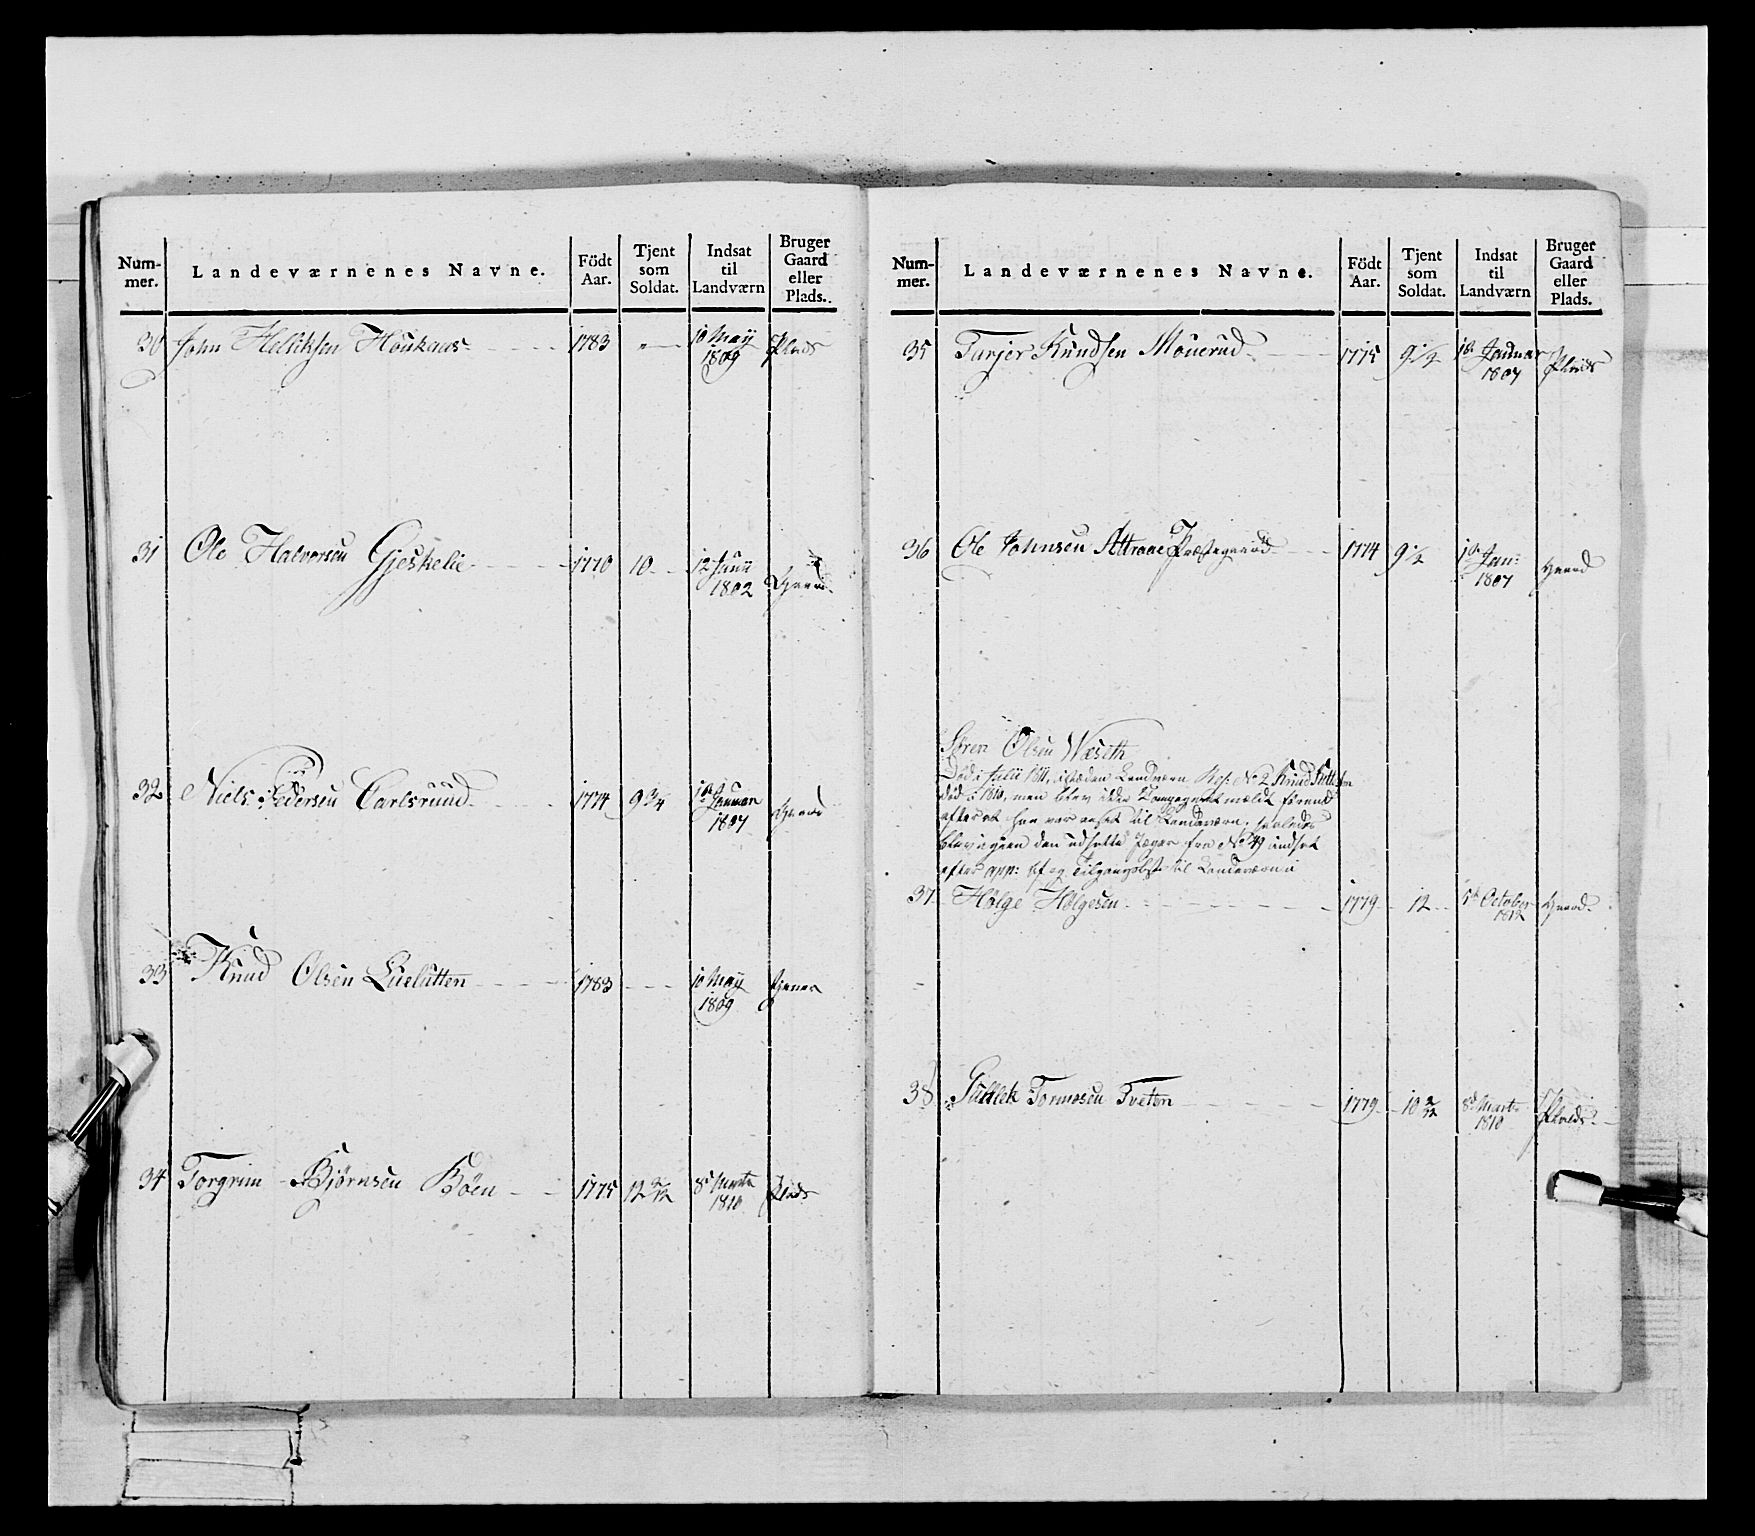 Num-
mer.
Landeværnenes Navne.
Födt
Aar.
Tjent
som
Soldat.
Indsat
til
Landværn
Bruger
Gaard
eller
Plads.
30 John Helliksen Houkaas 1783 10 May Plads
1809
31 Ole Halvorsen Gjeskelie 1770 10 12 Junii Gaard
1802
32 Niels Pedersen Carlsruud 1774 9 3/4 1ste Januar Gaard
1807
33 Knud Olsen Luelutten 1783 10 May
1809
34 Torgrim Bjørnsen Böen 1775 12 2/12 8d Marts Plads
1810
Num-
mer.
Landeværnenes Navne.
Födt
Aar.
Tjent
som
Soldat.
Indsat
til
Landværn
Bruger
Gaard
eller
Plads.
35 Tarjer Knudsen Mouerud 1775 9 1/2 1ste Januar Plads
1807
36 Ole Johnsen Attraae Præstegaard 1774 9 1/2 1ste Jan: Gaard
1807
Sören Olsen Wæseth
Död i Julii 1811, istæden Landværn Res: No 2 Knud
död i 1810, men blev ikke Compagniet mældt förend
efter at han var ansat til Landeværn,
blev igien den udsatte Jæger fra No 49 indsat
efter app: Af og Tilgangslist til Landeværn
37 Hølge Hølgesen 1779 12 October Gaard
1812
38 Gullek Tormosen Tveten 1779 10 2/12 8d Marts Plads
1810